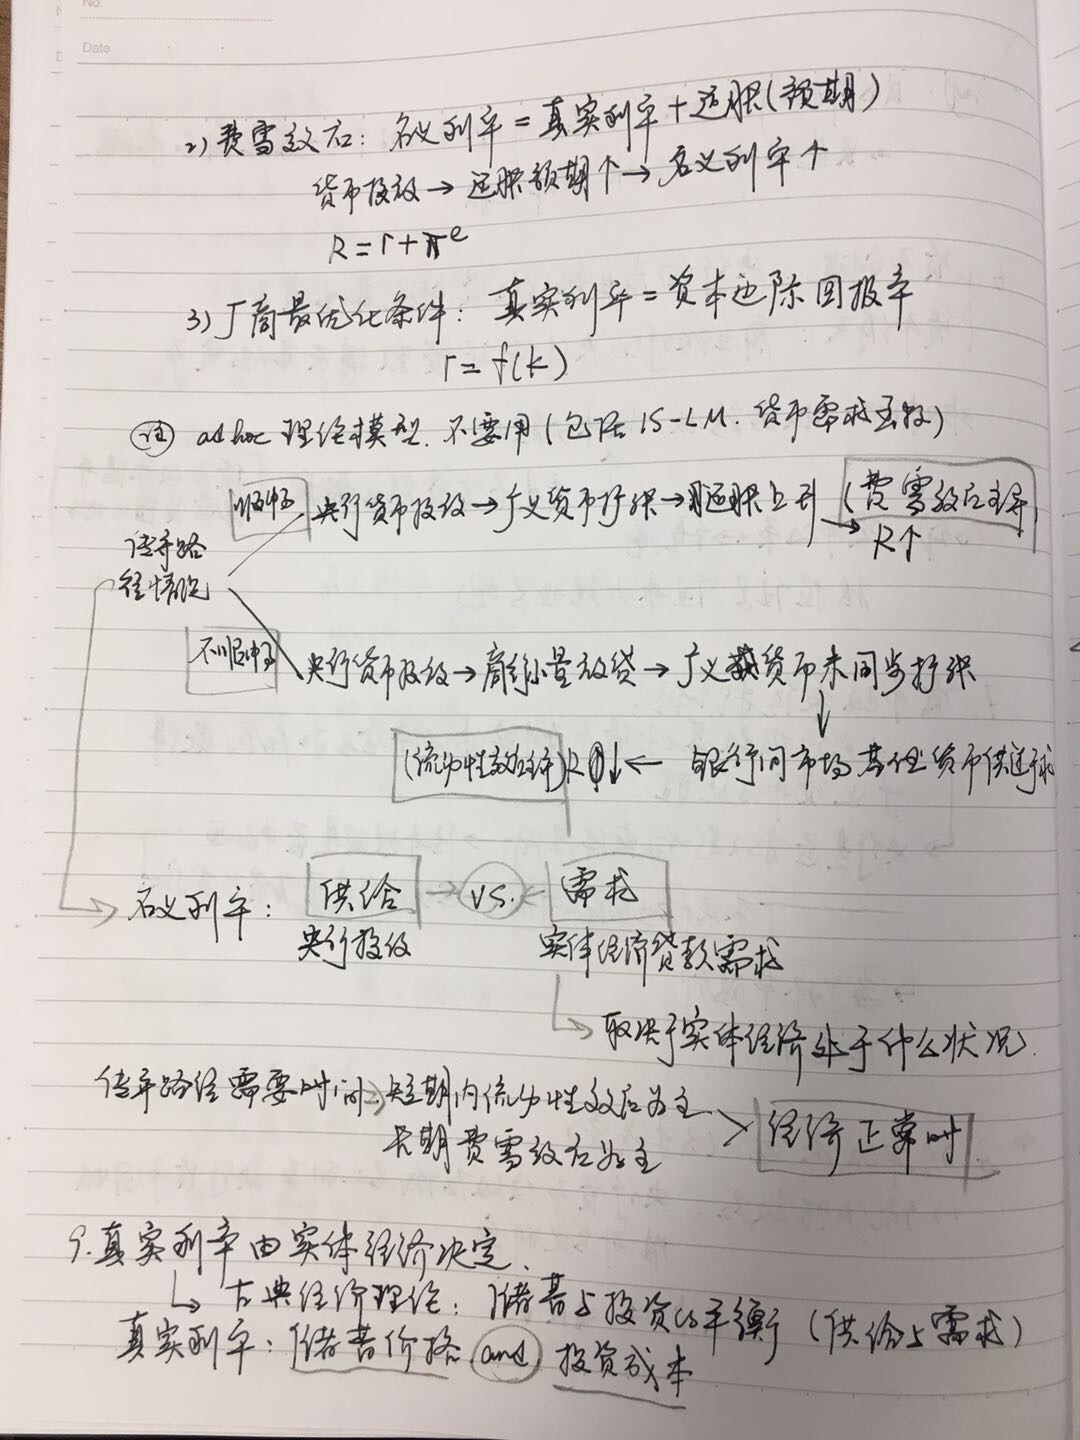 No.
Date
2) 费雪效应: 名义利率 = 真实利率 + 通胀(预期)
货币投放 → 通胀预期↑ → 名义利率↑
R = r + π^e
3) 厂商最优化条件: 真实利率 = 资本边际回报率
r = f(k)
注 ad hoc 理论模型. 不要用 (包括 IS-LM. 货币需求函数)
顺畅 央行货币投放 → 广义货币扩张 → 通胀上升 → (费雪效应主导) R↑
传导路径情况
不顺畅 央行货币投放 → 商行少量放贷 → 广义货币未同步扩张
↓
(流动性效应主导) R↓ ← 银行间市场基础货币供过于求
名义利率: 供给 → vs. ← 需求
央行投放 实体经济贷款需求
取决于实体经济处于什么状况.
传导路径需要时间 → 短期内流动性效应为主
长期费雪效应为主 经济正常时
9. 真实利率由实体经济决定.
古典经济理论: 储蓄与投资的平衡 (供给与需求)
真实利率: 储蓄价格 and 投资成本